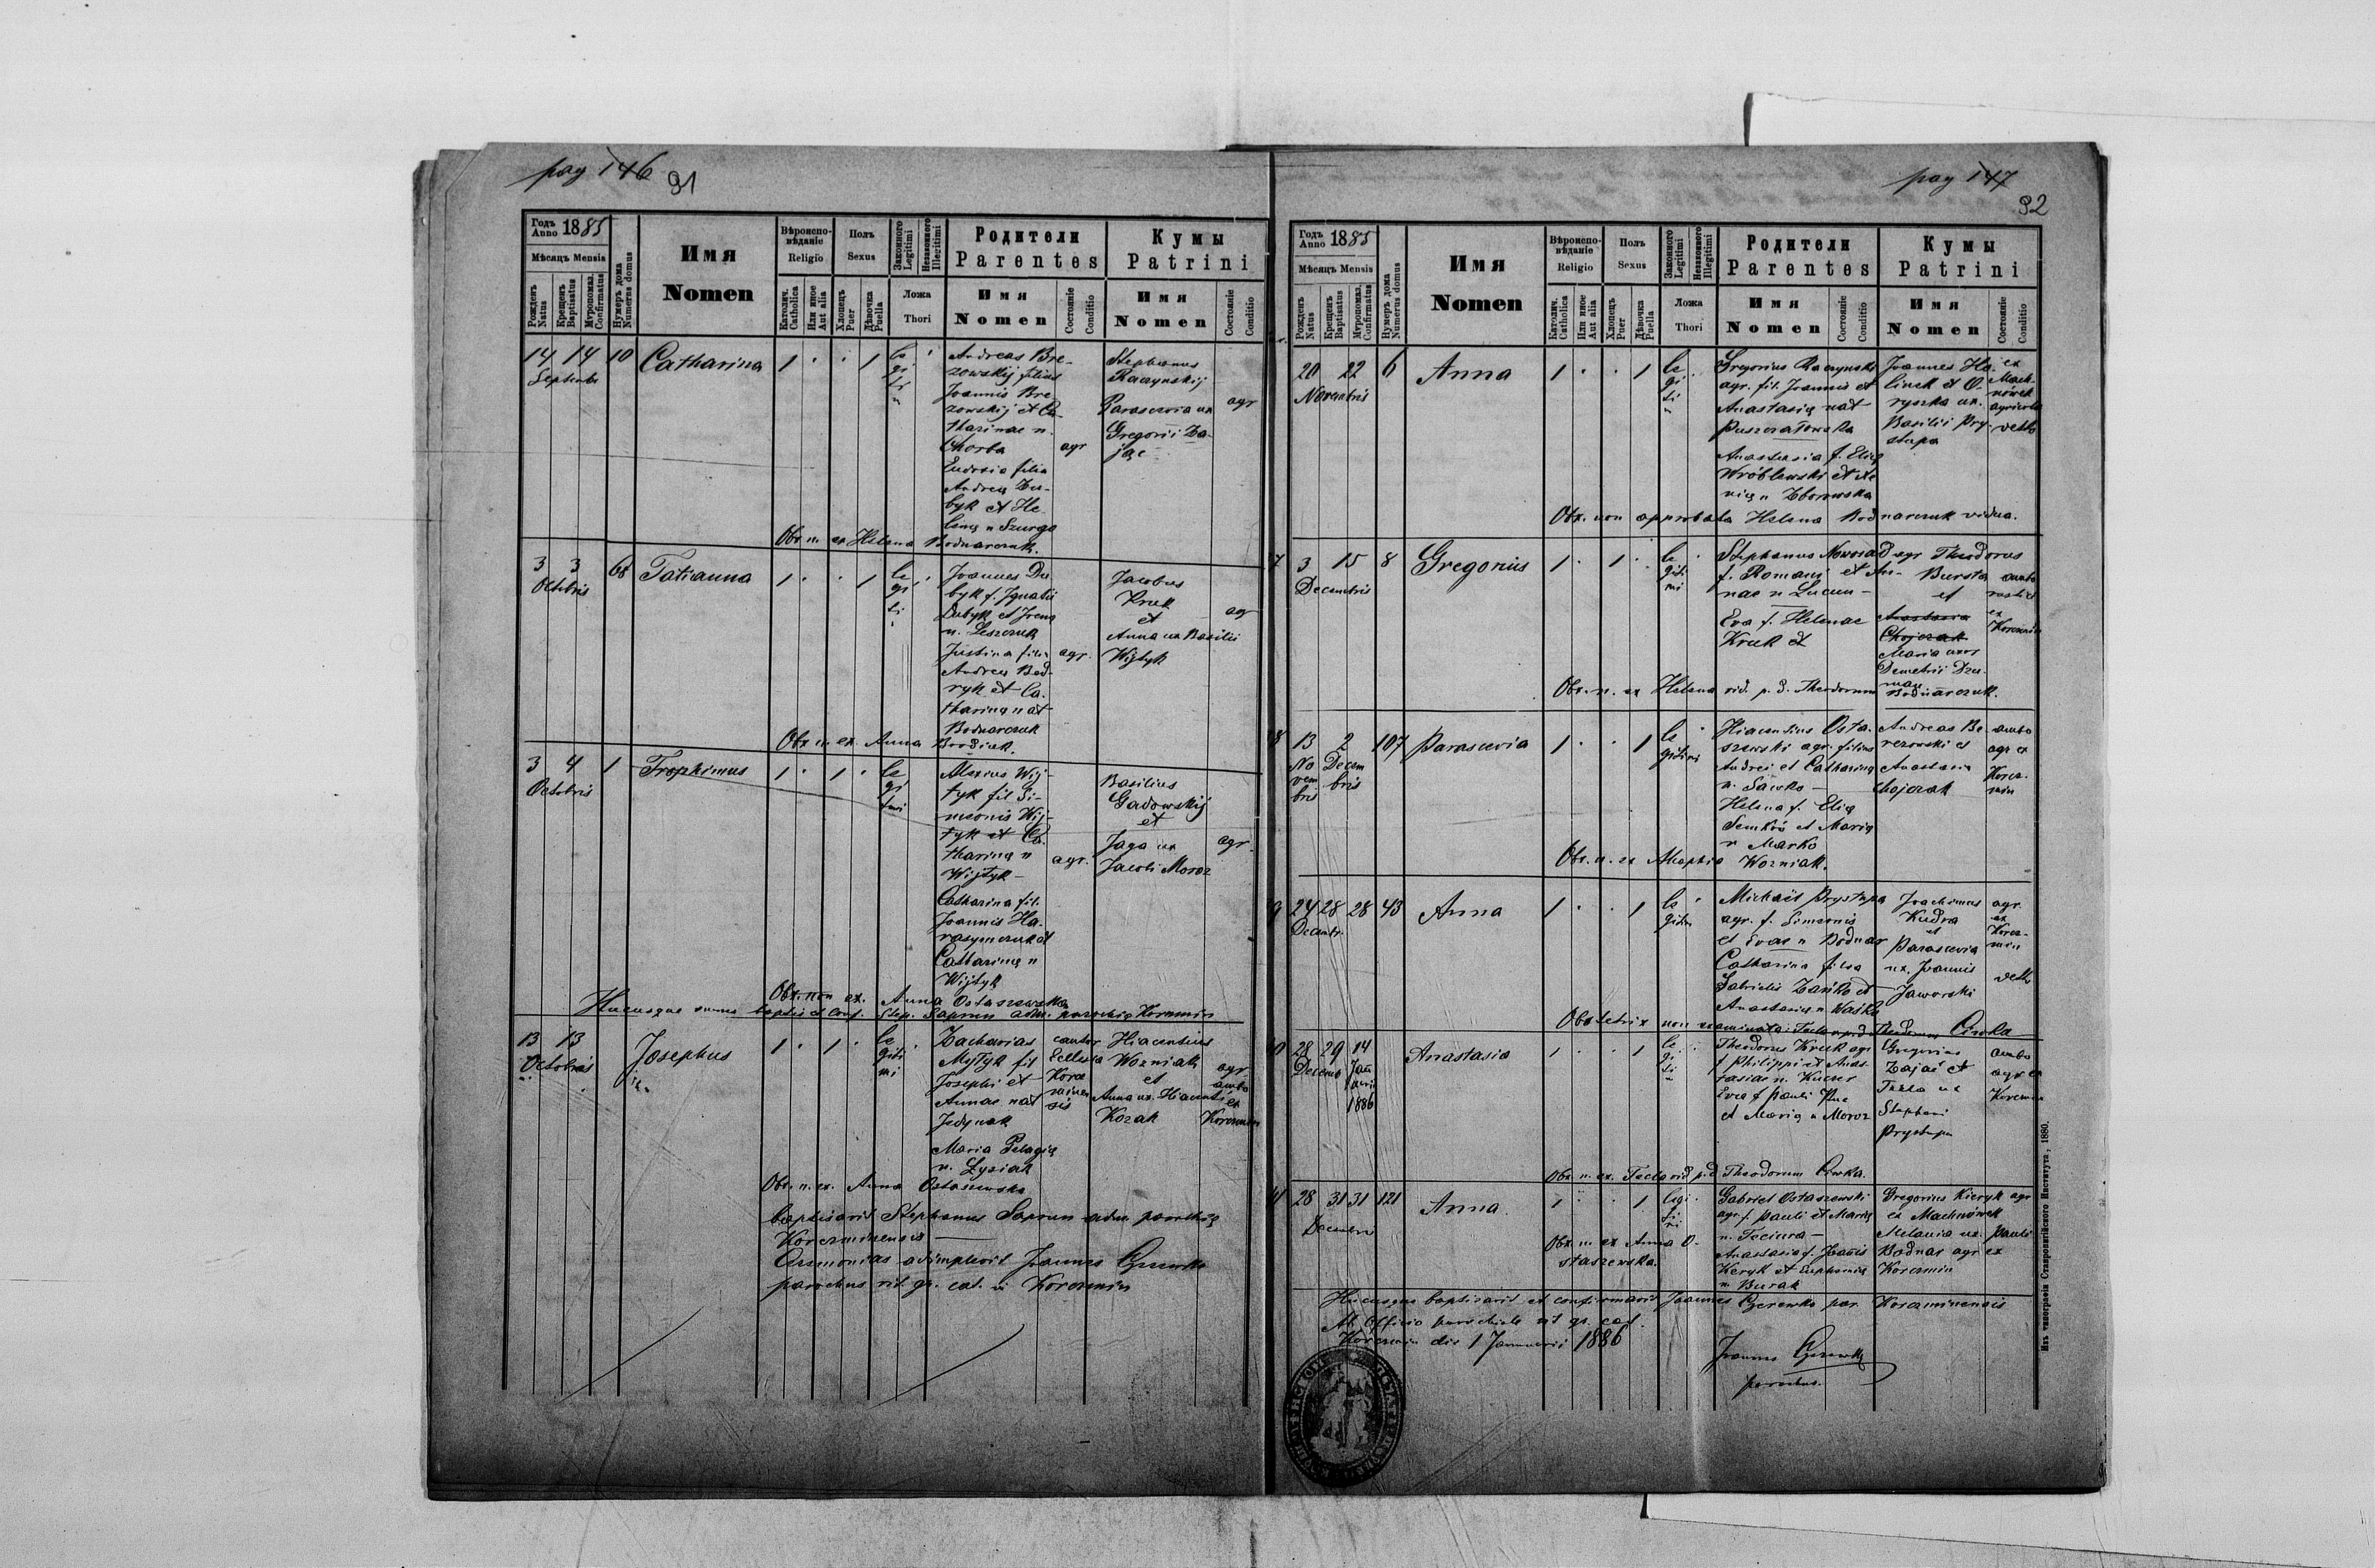 pag 146 91
Годъ Anno 1885
Мѣсяцъ Mensis
Рожденъ Natus
Крещенъ Baptisatus
Мѵропомаз. Confirmatus
Нумеръ дома Numerus domus
Имя
Nomen
Вѣроиспо-
вѣданіе
Religio
Католич. Catholica
Или иное Aut alia
Полъ
Sexus
Хлопецъ Puer
Дѣвочка Puella
Законного Legitimi
Незаконного Illegitimi
Ложа
Thori
Родители
Parentes
Имя
Nomen
Состояніе Conditio
Кумы
Patrini
Имя
Nomen
Состояніе Conditio
14 14 10 Catharina 1 · · 1 le
Septembr
gi
ti
Andreas Bre-
zowskij filius
Joannis Bre-
zowskij et Ca-
tharinae n.
Chorba agr
Eudoxia filia
Andreę Du-
byk et He-
lenę n Szurga
Stephanus
Raczynskij
Parascevia ux
Gregorii Za-
jac
agr
Obs n. ex Helena Bodnarczuk.
3 3 68 Tatianna 1 · · 1 le
Octobris
gi
ti
Joannes Du
byk f. Ignatii
Dubyk et Irenę
n. Leszczuk
Justina filia agr.
Andreę Bod-
ryk et Ca-
tharinę nat
Bodnarczuk
Jacobus
Kruk
et
Anna ux Basilii
Wijtyk
agr
Obs n ex. Anna
3 4 1 Trophimus 1 · 1 · le
Octobris
gi
timi
Alexius Wij-
tyk fil Si-
meonis Wij-
tyk et Ca-
tharinę n
Wijtyk – agr.
Catharina fil.
Joannis Ha-
rasymczuk et
Catharinę n
Wijtyk
Basilius
Gadowskij
et
Jaga ux
Jacobi Moroz
agr.
Obs. non ex. Anna Ostaszewska
Hucusque omnes baptis et conf. Step. Saprun adm. parochię Korczmin
13 13 Josephus 1 · 1 · le
Octobris
giti
mi
Zacharias
Mytyk fil
Josephi et
Annae nat
Jedynak
Maria Pelagię
n. Lysiak
cantor
Ecclesia
Korcz
minen
sis
Hiacentius
Wozniak
et
Anna ux. Hiacenti
Kozak
agr
ambo
ex
Korczmin
Obs. n. ex. Anna Ostaszewska
baptisavit Stephanus Saprun adm. parochię
Korczminensis
Ceremonias adimplevit Joannes Czerewko
parochus rit. gr. cat. in Korczmin
pag 147
92
Годъ Anno 1885
Мѣсяцъ Mensis
Рожденъ Natus
Крещенъ Baptisatus
Мѵропомаз. Confirmatus
Нумеръ дома Numerus domus
Имя
Nomen
Вѣроиспо-
вѣданіе
Religio
Католич. Catholica
Или иное Aut alia
Полъ
Sexus
Хлопецъ Puer
Дѣвочка Puella
Законного Legitimi
Незаконного Illegitimi
Ложа
Thori
Родители
Parentes
Имя
Nomen
Состояніе Conditio
Кумы
Patrini
Имя
Nomen
Состояніе Conditio
20 22 6 Anna 1 · · 1 le
Novembris
gi
ti
Gregorius Raczynski
agr. fil. Joannis et
Anastasię nat
Anastasia f. Elię
Wróblewski et Xe
nię n Zborowska
Joannes Ha-
linek et O-
ryszka ux.
Basilii Pry-
stupa
ex
Mach-
nówek
agricola
Obs. non approbata Helena Bodnarczuk vidua.
7 3 15 8 Gregorius 1 · 1 · le
Decembris
giti
mi
Stephanus Nowosad agr
f. Romani et An-
nae n
Eva f. Helenae
Kruk et
Theodorus
Bursta
et
Anastasia
Chojczak
Maria uxor
Demetrii Dzu-
man
ambo
rustici
ex
Korczmin
Obs. n. ex Helena vid. p. d. Theodorum Bodnarczuk.
8 13 2 107 Parascevia 1 · · 1 le
No Decem
vem bris
bris
gitimi
Hiacentius Osta-
szewski agr. filius
Andrei et Catharinę
n. Sawko –
Helena f. Elię
Semkow et Marię
n Marko
Andreas Be
rezowski et
Anastasia
Chojczak
ambo
agr ex
Korcz-
min
Obs. n. ex Wozniak.
9 24 28 28 43 Anna 1 · · 1 le
Decembr.
gitimi
Michaël Prystupa
agr. f. Simeonis
et Evae n Bodnar
Catharina filia
Gabrielis et
Anastasię n. Waśko
Joachimus
Kudra
et
Parascevia
ux. Joannis
Jaworski
agr.
ex
Korcz-
min
Obstetrix non examinata: Tecla vid p d Theodorum
40 28 29 14 Anastasia 1 · · 1 le
Decemb Jan
uarii
1886
gi
ti
Theodorus Kruk agr
f Philippi et Anas-
tasiae n. Kucher
Eva f Pauli
et Marię n Moroz
Gregorius
Zająć et
Tecla ux
Stephani
Prystupa
ambo
agr ex
Korczmin
Obs n. ex. Tecla vid p.d Theodorum
41 28 31 31 121 Anna 1 · · 1 legi
Decembris
ti
mi
Gabriel Ostaszewski
agr f. Pauli et Marię
n. Teciura –
Anastasia f. Joanis
Keryk et Euphemię
n Burak
Gregorius Kieryk agr
ex Machnówek
Melania ux. Pauli
Bodnar agr ex
Korczmin
Obs. n. ex Anna O-
staszewska.
Hucusque baptisavit et confirmavit Joannes Czerewko par. Korczminensis
Ab Officio parochiale rit gr. cat.
Korczmin die 1 Januarii 1886
Joannes Czerewko
parochus.
Изъ типографіи Ставропигійского Института, 1880.